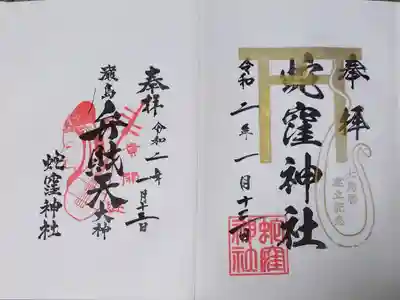 奉拝
蛇窪神社
令和二年一月十三日
蛇窪神社
奉拝
令和二年一月十三日
厳島弁財天大神
蛇窪神社